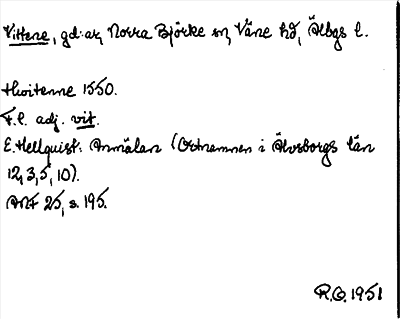 Vittene, gd:ar, Norra Björke sn, Väne hd, Älbgs l.
Hwitenne 1550.
F.l. adj. vit.
E. Hellquist. Anmälan (Ortnamnen i Älvsborgs län
12, 3, 5, 10).
ANF 25, s. 195.
R.O. 1951